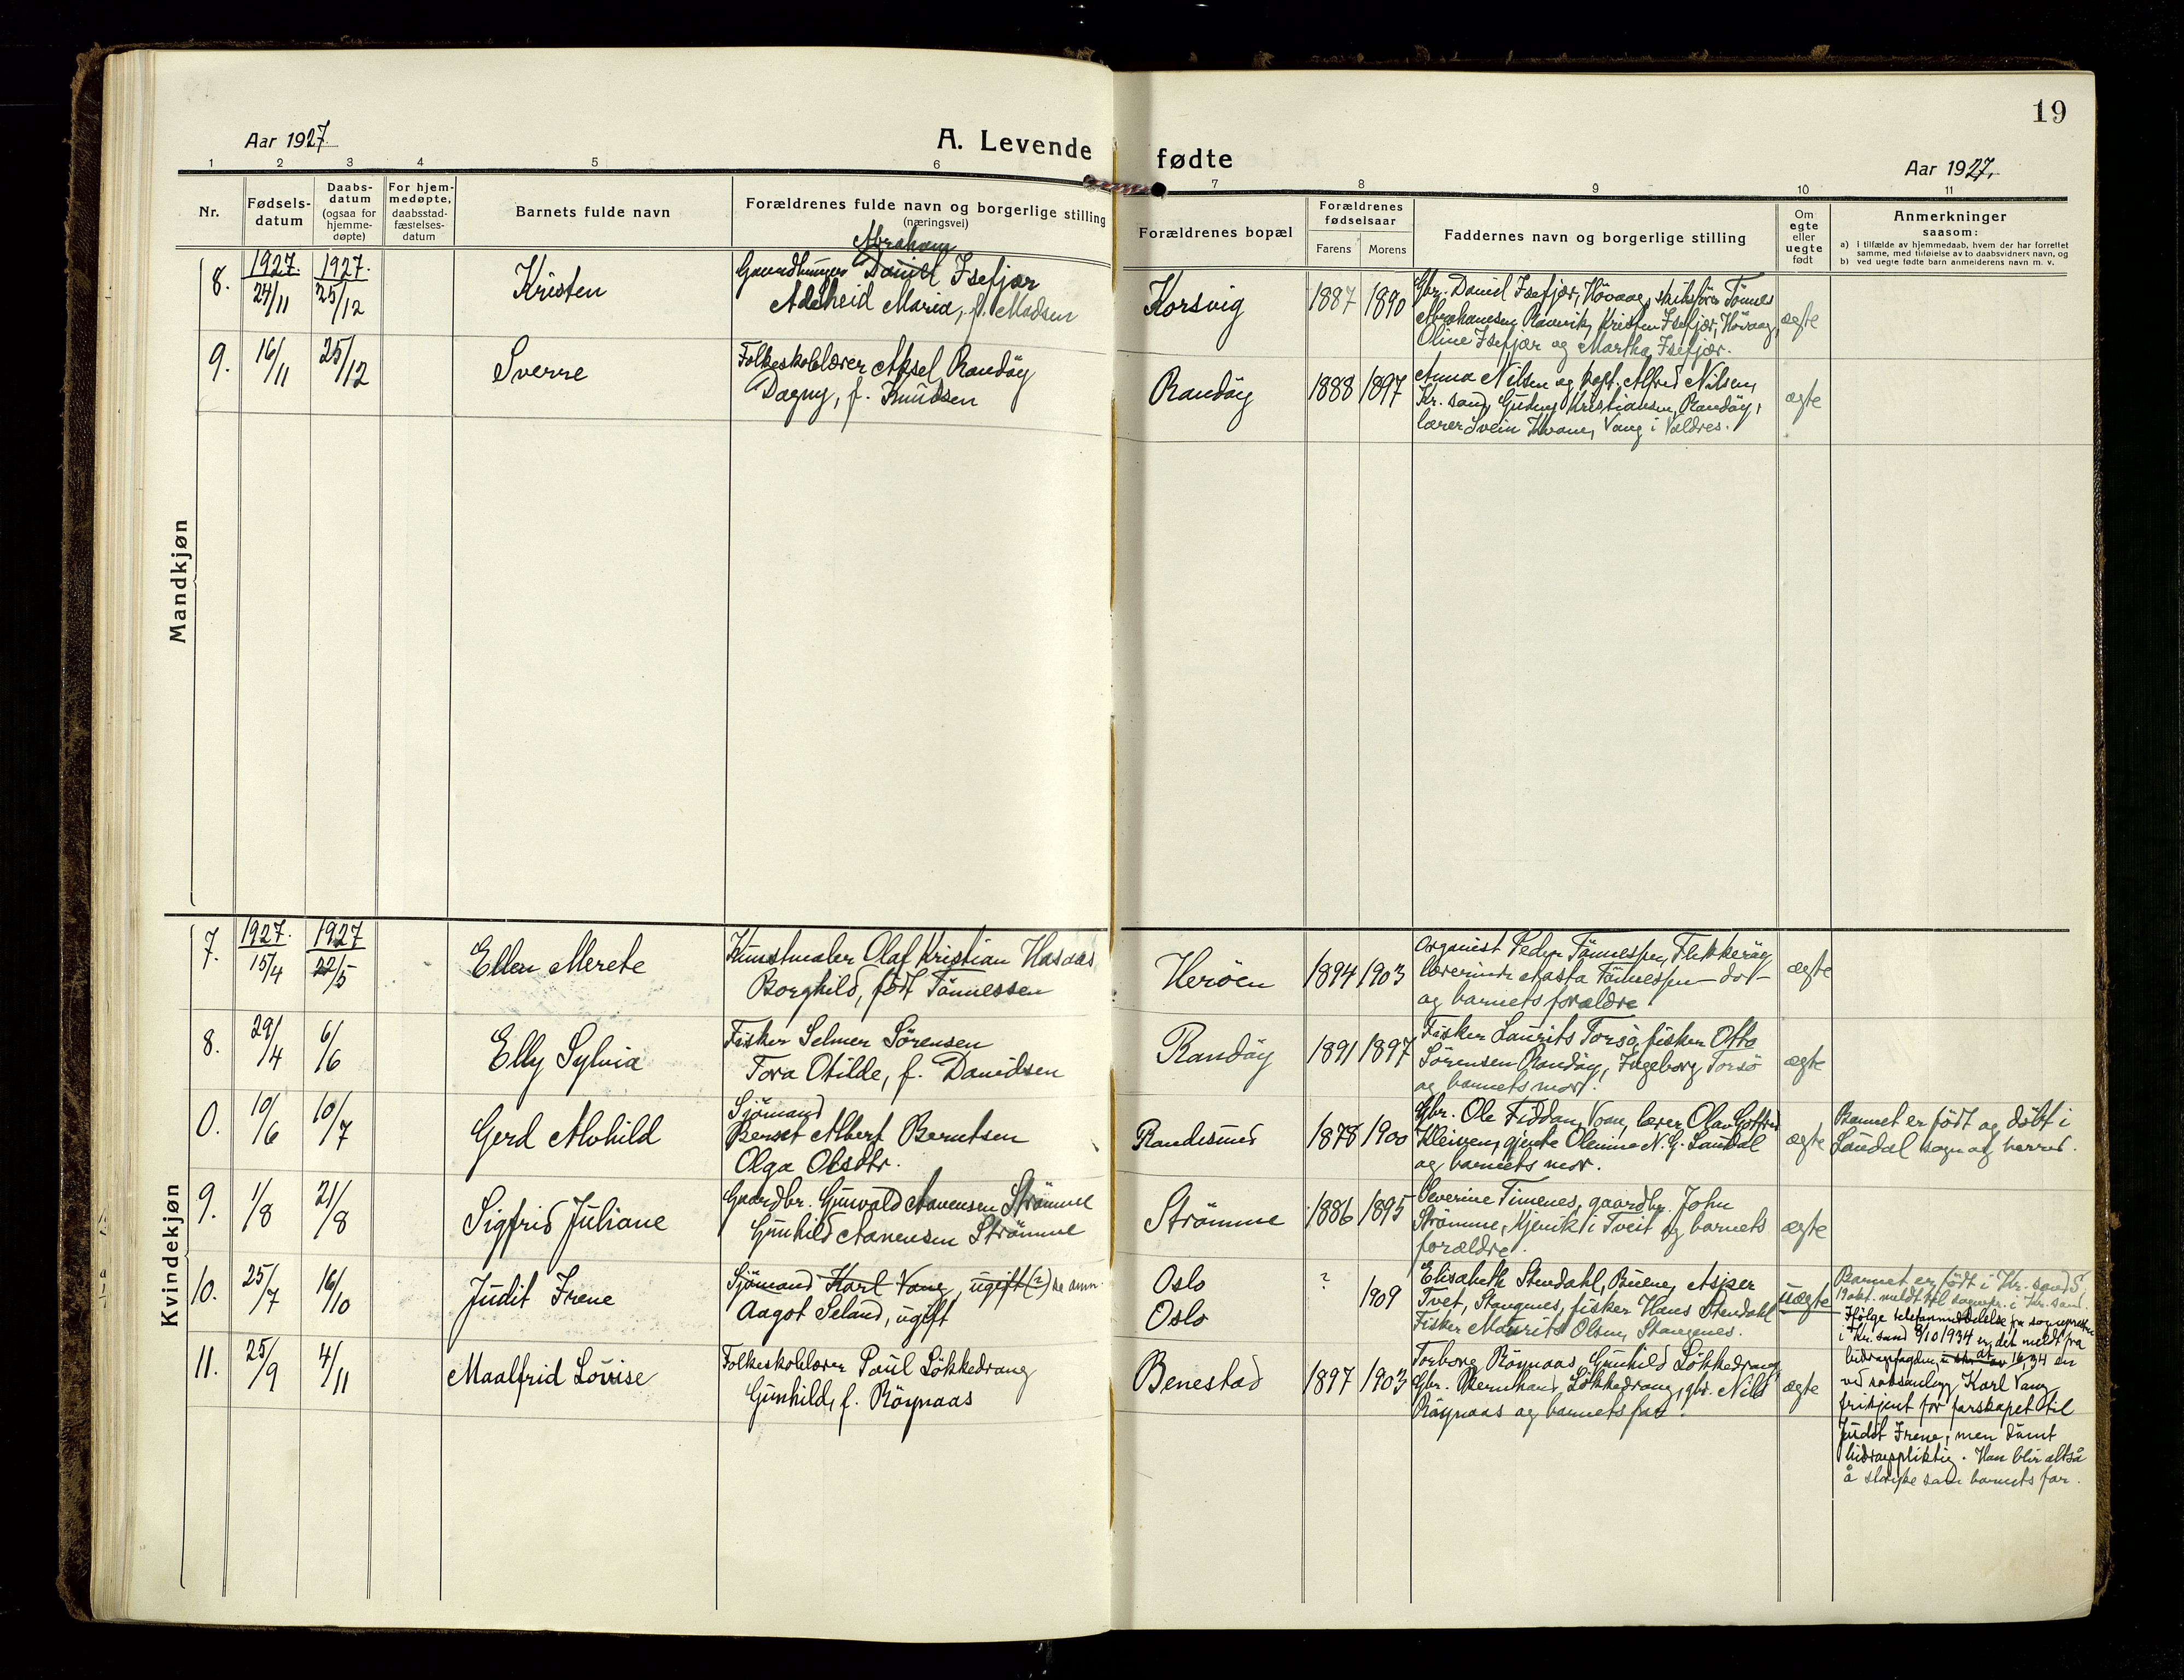 19
Aar 1927.
A. Levende fødte
Aar 1927.
1 2 3 4 5 6 7 8 9 10 11
Nr.
Fødselsdatum
Daabsdatum (ogsaa for hjemmedøpte)
For hjemmedøpte, daabsstadfæstelsesdatum
Barnets fulde navn
Forældrenes fulde navn og borgerlige stilling
(næringsvei)
Forældrenes bopæl
Forældrenes fødselsaar
Farens Morens
Faddernes navn og borgerlige stilling
Om egte eller uegte født
Anmerkninger
saasom:
a) i tilfælde av hjemmedaab, hvem der har forrettet
samme, med tilføielse av to daabsvidners navn, og
b) ved uegte fødte barn anmelderens navn m. v.
Mandkjøn
8. 1927. 24/11 1927. 25/12
Kristen
Abraham
Gaardbruger Daniel Isefjær
Adelheid Maria, f. Madsen
Korsvig
1887 1890
Gbr. Daniel Isefjær, Høvaag, Tønnes
Abrahamsen Kristen Isefjær, Høvaag,
Oline Isefjær og Martha Isefjær.
ægte
9. 16/11 25/12
Sverre
Folkeskolelærer Aksel Randöy
Dagny, f. Knudsen
Randöy
1888 1897
Anna Nilsen og kapt. Alfred Nilsen,
Kr.sand, Gudny Kristiansen, Randöy,
lærer Svein Vang i Valdres.
ægte
Kvindekjøn
7. 1927. 15/4 1927 22/5
Ellen Merete
Kunstmaler Olaf Kristian Hasaas
Borghild, født Tönnessen
Heröen
1894 1903
Organist Peder Tönnessen, Flekkeröy,
lærerinde Aasta Tönnessen
og barnets forældre
ægte
8. 29/4 6/6
Elly Sylvia
Fisker Selmer Sörensen
Tora Otilde, f. Davidsen
Randöy
1891 1897
Fisker Laurits Torsö, fisker Otto
Sörensen Randöy, Ingeborg Torsö
og barnets mor.
ægte
0. 10/6 10/7
Gerd Alvhild
Sjömand
Bernt Albert Berntsen
Olga Olsdtr.
Randesund
1878 1900
Gbr. Ole Fiddan, lærer Olav Gotfred
Kleiven, gjente Olemine N. G. Laudal
og barnets mor.
ægte
Barnet er födt og döbt i
Laudal sogn og herred.
9. 1/8 21/8
Sigfrid Juliane
Gaardbr. Gunvald Aanensen Strömme
Gunhild Aanensen Strömme
Strömme
1886 1895
Severine Timenes, gaardbr. John
Strömme, i Tveit og barnets
forældre.
ægte
10. 25/7 16/10
Judit Irene
Sjömand Karl Vang, ugift (?) se anm.
Aagot Seland, ugift
Oslo
Oslo
? 1909
Elisabeth Stendahl, Asper
Tvet, Stangenes, fisker Hans Stendahl
Fisker Maurits Olsen, Stangenes.
uægte
Barnet er födt i Kr.sand S,
19 okt. meldt til sognepr. i Kr.sand.
Ifölge telefonmeddelelse fra sognepresten
i Kr.sand 8/10 1934 er det meldt fra
bidragsfogden
Karl Vang
frikjent for farskapet til
Judit Irene, men dömt
bidragspliktig. Han blir altså
å stryke som barnets far.
11. 25/9 4/11
Maalfrid Lovise
Folkeskolelærer Paul Lökkedrang
Gunhild, f. Röynaas
Benestad
1897 1903
Torborg Röynaas, Gunhild Lökkedrang,
Gbr. Bernhard Lökkedrang, gbr. Nils
Röynaas og barnets far.
ægte